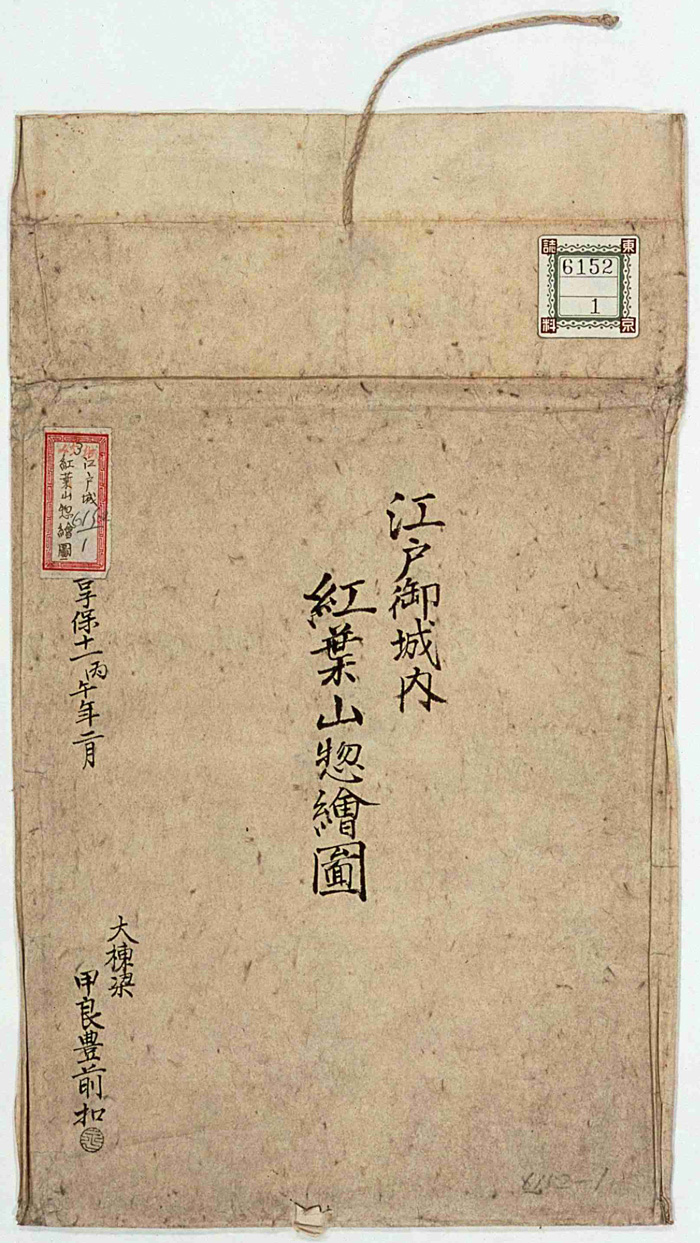 東京誌料
6152
1
江戸御城内
紅葉山惣繪圖
江戸城
紅葉山惣繪圖
6152
1
享保十一丙午年二月
大棟梁
甲良豊前扣
6152-1